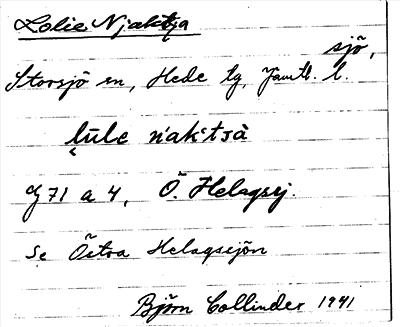 Lolie Njaktja
sjö,
Storsjö sn, Hede tg, Jämtl. l.
lūle ńaktsà
Cg 71 a 4, Ö. Helagsj.
Se Östra Helagssjön
Björn Collinder 1941